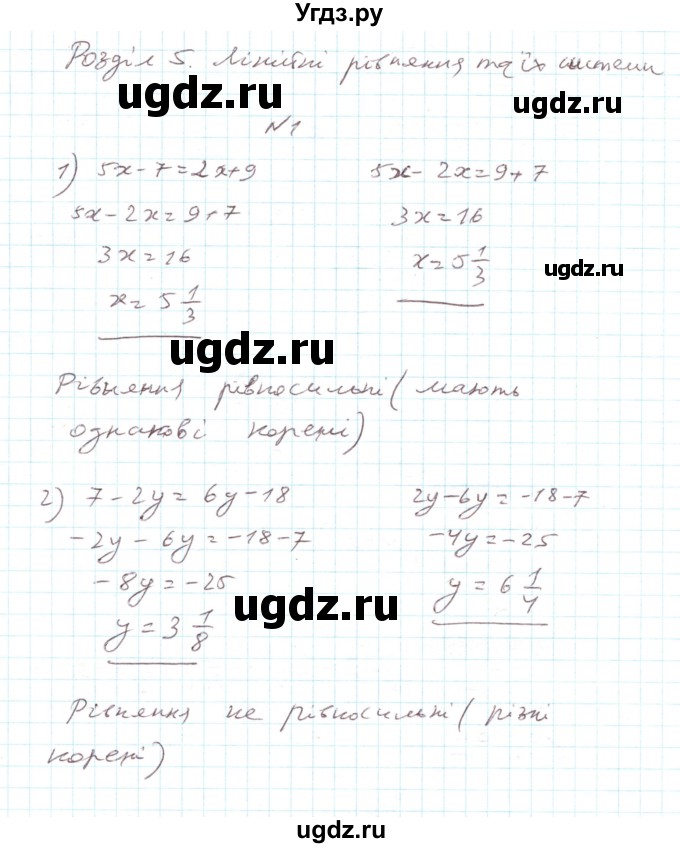 Угдз.ру
Розділ 5. Лінійні рівняння та їх системи
ugdz.ru
№1
1) 5x - 7 = 2x + 9    5x - 2x = 9 + 7
5x - 2x = 9 + 7    3x = 16
3x = 16    x = 5 1/3
ugdz.ru
x = 5 1/3
ugdz.ru
Рівняння рівносильні (мають
однакові корені)
2) 7 - 2y = 6y - 18    2y - 6y = -18 - 7
-2y - 6y = -18 - 7    -4y = -25
-8y = -25    y = 6 1/4
ugdz.ru
y = 3 1/8
Рівняння не рівносильні (різні
корені)
ugdz.ru
ugdz.ru